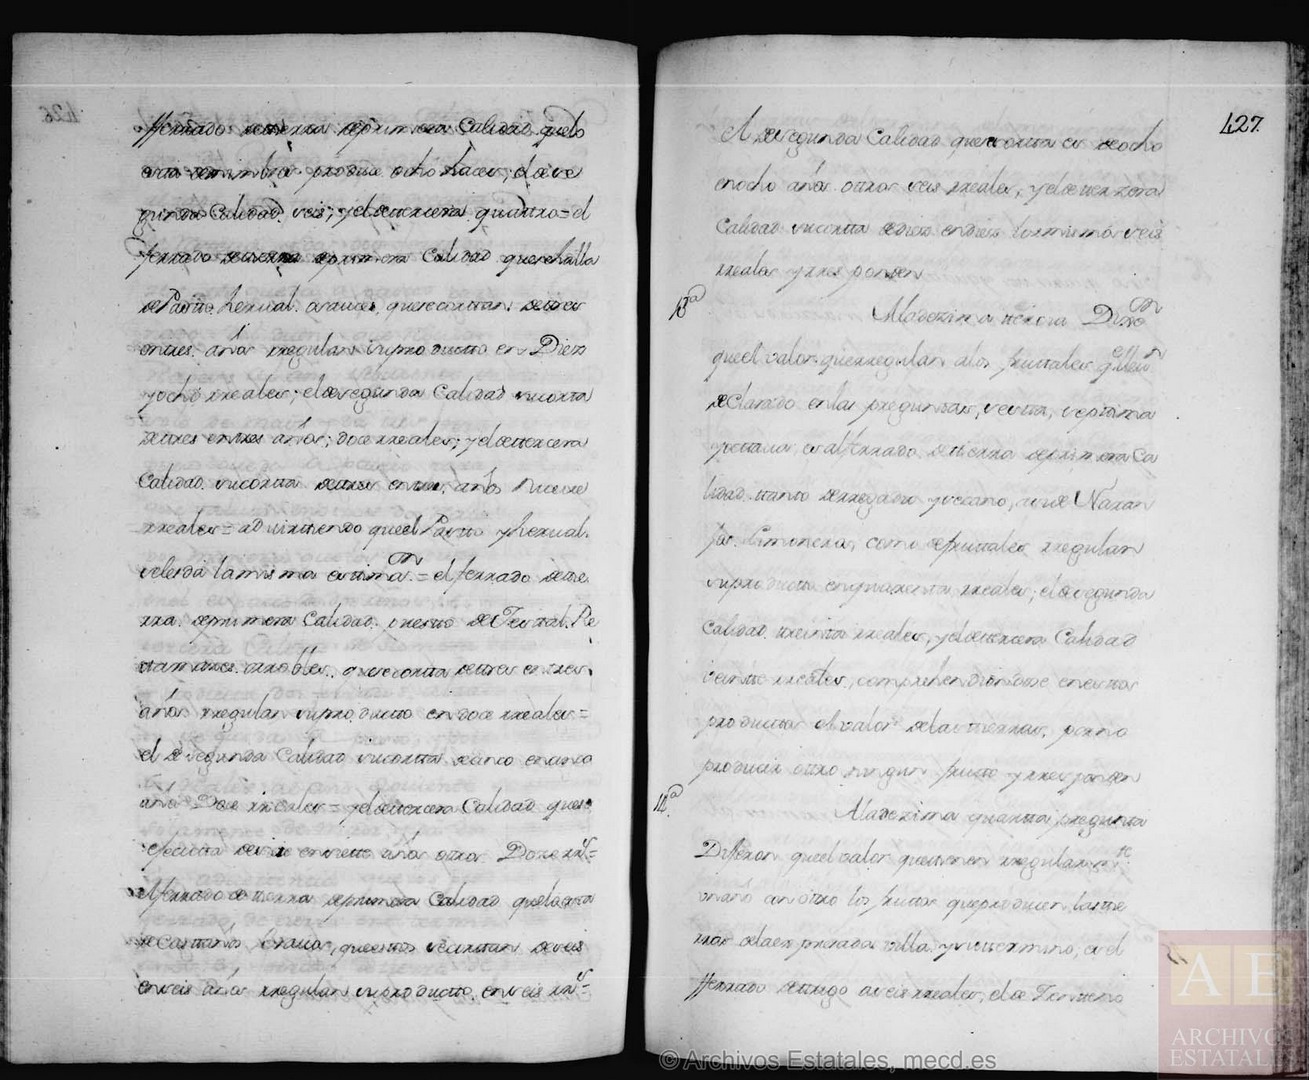 fferrado de tierra de primera Calidad que lo
esta de mimbral produce ocho haces; el de se
gunda Calidad seis; y el de tercera quattro = el
ferrado de tierra de primera Calidad que se halla
de Pastto herial
en tres años regulan su producto en Diez
y ocho rreales; el de segunda Calidad se cortta
de tres en tres años; doce rreales; y el de ttercera
Calidad se cortta de tres en tres años Nueve
rreales = advirttiendo que el Pastto y herial
se les da la misma esttimaon = el ferrado de tie
rra de primera Calidad puesto de Toxal, Re
ttamares, que se cortta de tres en tres
años rregulan su producto en doce rreales =
el de segunda Calidad se cortta de cinco en cinco
años Doce rreales = y el de ttercera Calidad que se
efectua de siete en siete años otros Doze rrs =
el ferrado de tierra de primera Calidad que lo esta
de Casttaños bravos, que esttos se corttan de seis
en seis años rregulan su producto en seis rrs =
427.
A de segunda Calidad que se cortta es de ocho
en ocho años ottros seis rreales, y el de tterzera
Calidad se cortta de diez en diez los mismos seis
rreales y rresponden
13a
A la dezima ttercia Dixeon
que el valor que rregulan a los fruttales q llevan
declarado en las pregunttas, sextta, septtima
y ottava, es al ferrado de tierra de primera Ca
lidad tanto de rregadio y secano, asi de Naran
jos, Limoneros, como de fruttales rregulan
su producto en quarentta rreales; el de segunda
Calidad treintta rreales, y el de ttercera Calidad
veintte rreales, comprehendiendose en esttos
producttos el valor de las tierras, por no
producir ottro ningun frutto y rresponden
14a
A la dezima quartta pregunta
Dijeron que el valor que ttienen rregularmte
un año con ottro los fruttos que producen las ttie
rras de la expresada villa, y su ttermino, es el
fferrado de ttrigo a seis rreales, el de Zentteno
© Archivos Estatales, mecd.es
AE
ARCHIVOS
ESTATALES